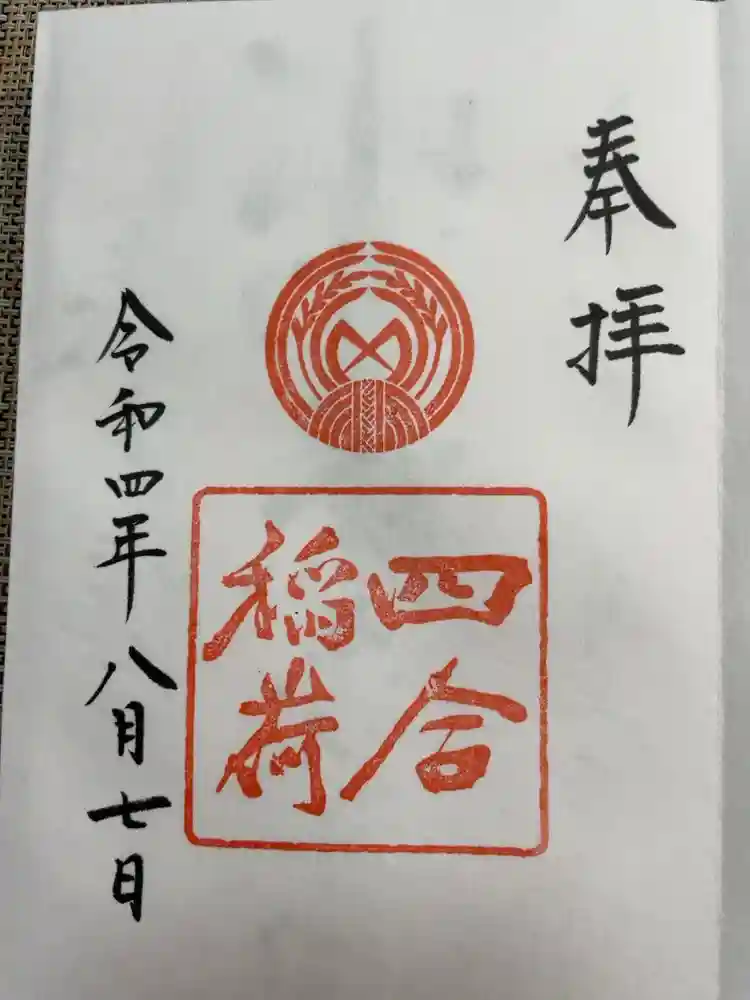 奉拝
四合
稲荷
令和四年八月七日